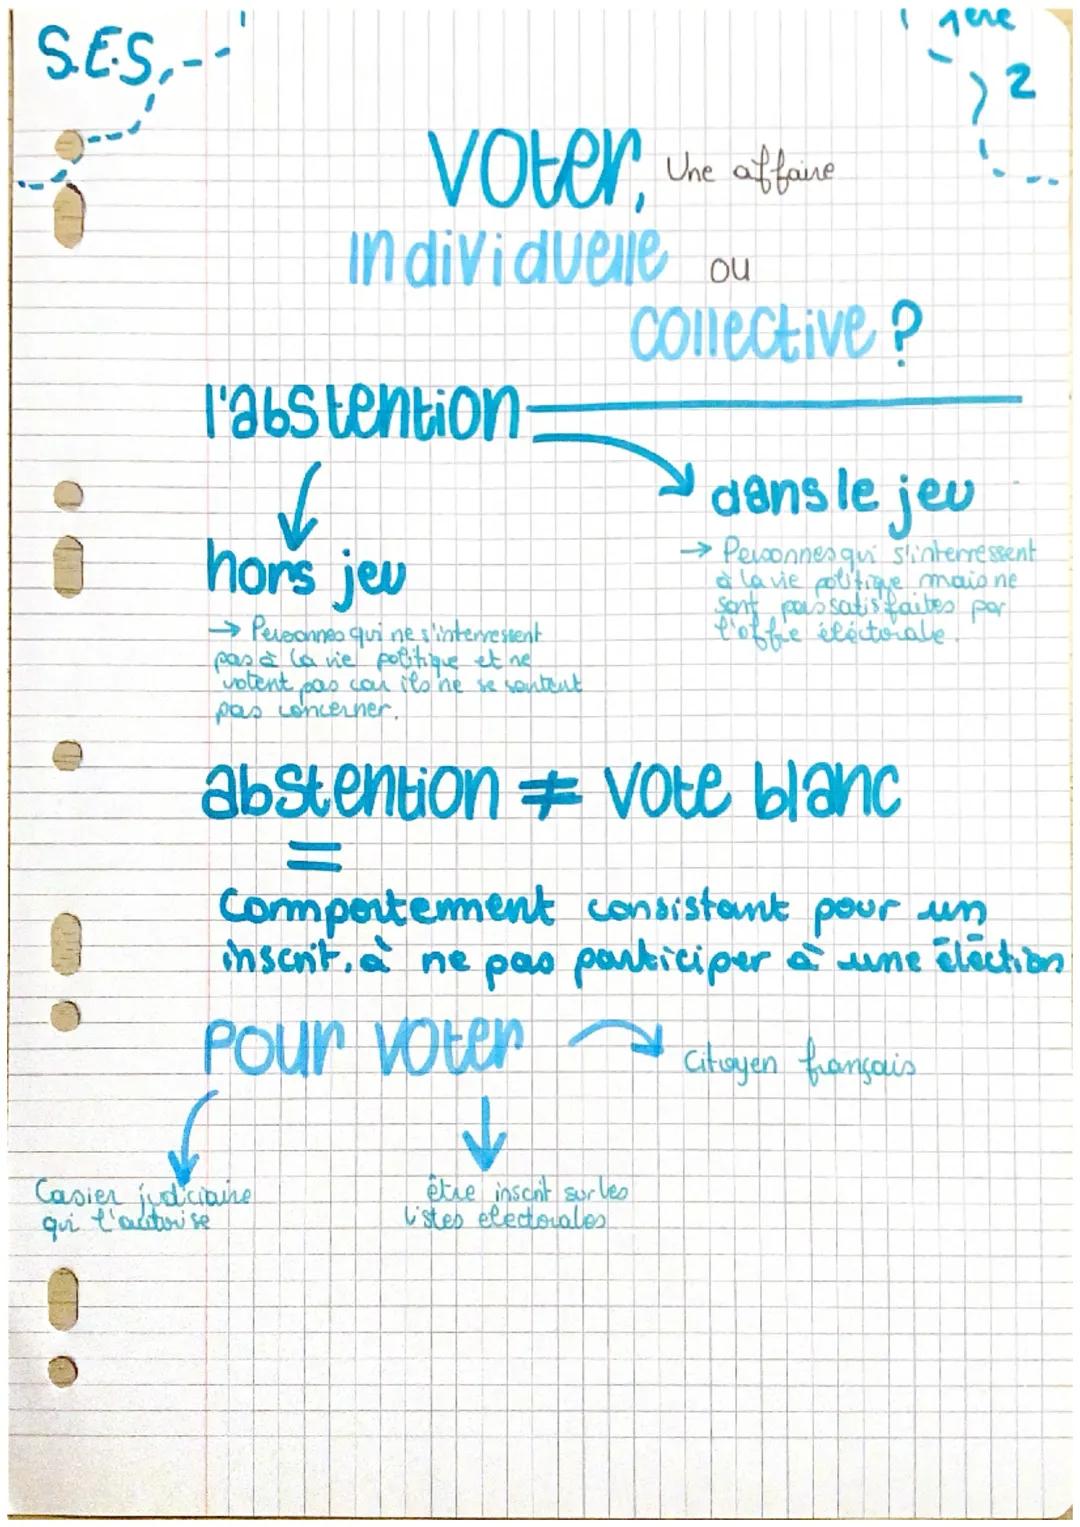 S.E.S.
1ère
2
Voter, Une affaire
individuelle ou
collective ?
l'abstention
dans le jeu
→ Personnes qui s'interressent
à la vie politique mais ne
sont pas satisfaites par
l'offre éléctorale.
hors jeu
→ Personnes qui ne s'interressent
pas à la vie politique et ne
votent pas car ils ne se sentent
pas concerner.
abstention ≠ vote blanc
=
Comportement consistant pour un
inscrit, à ne pas participer à une élection
Pour voter
Citoyen français
Casier judiciaire
qui l'autorise
être inscrit sur les
listes electorales